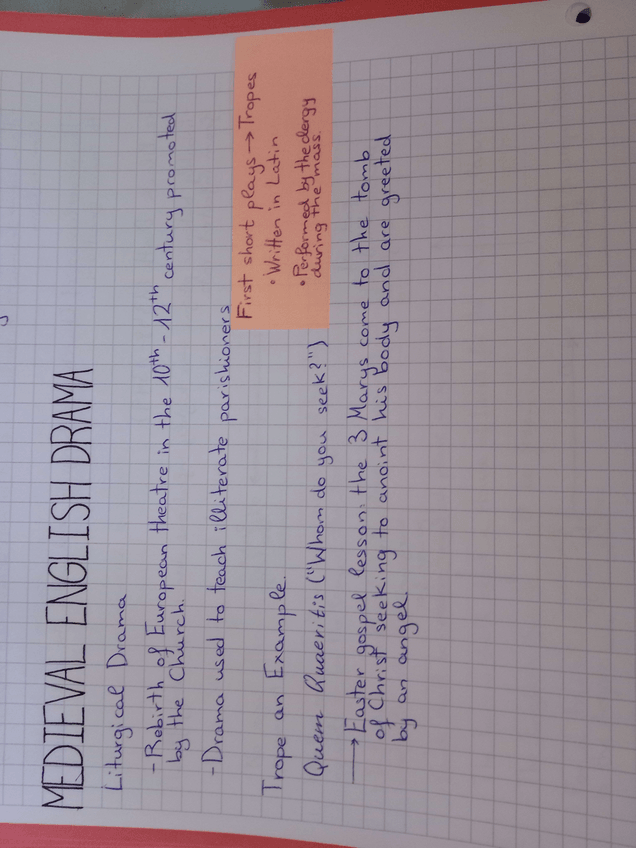 MEDIEVAL ENGLISH DRAMA
Liturgical Drama
- Rebirth of European theatre in the 10th - 12th century promoted
by the Church.
- Drama used to teach illiterate parishioners
First short plays → Tropes
• Written in Latin
• Performed by the clergy
during the mass.
Trope an Example.
Quem Quaeritis ("Whom do you seek?")
→ Easter gospel lesson: the 3 Marys come to the tomb
of Christ seeking to anoint his body and are greeted
by an angel.